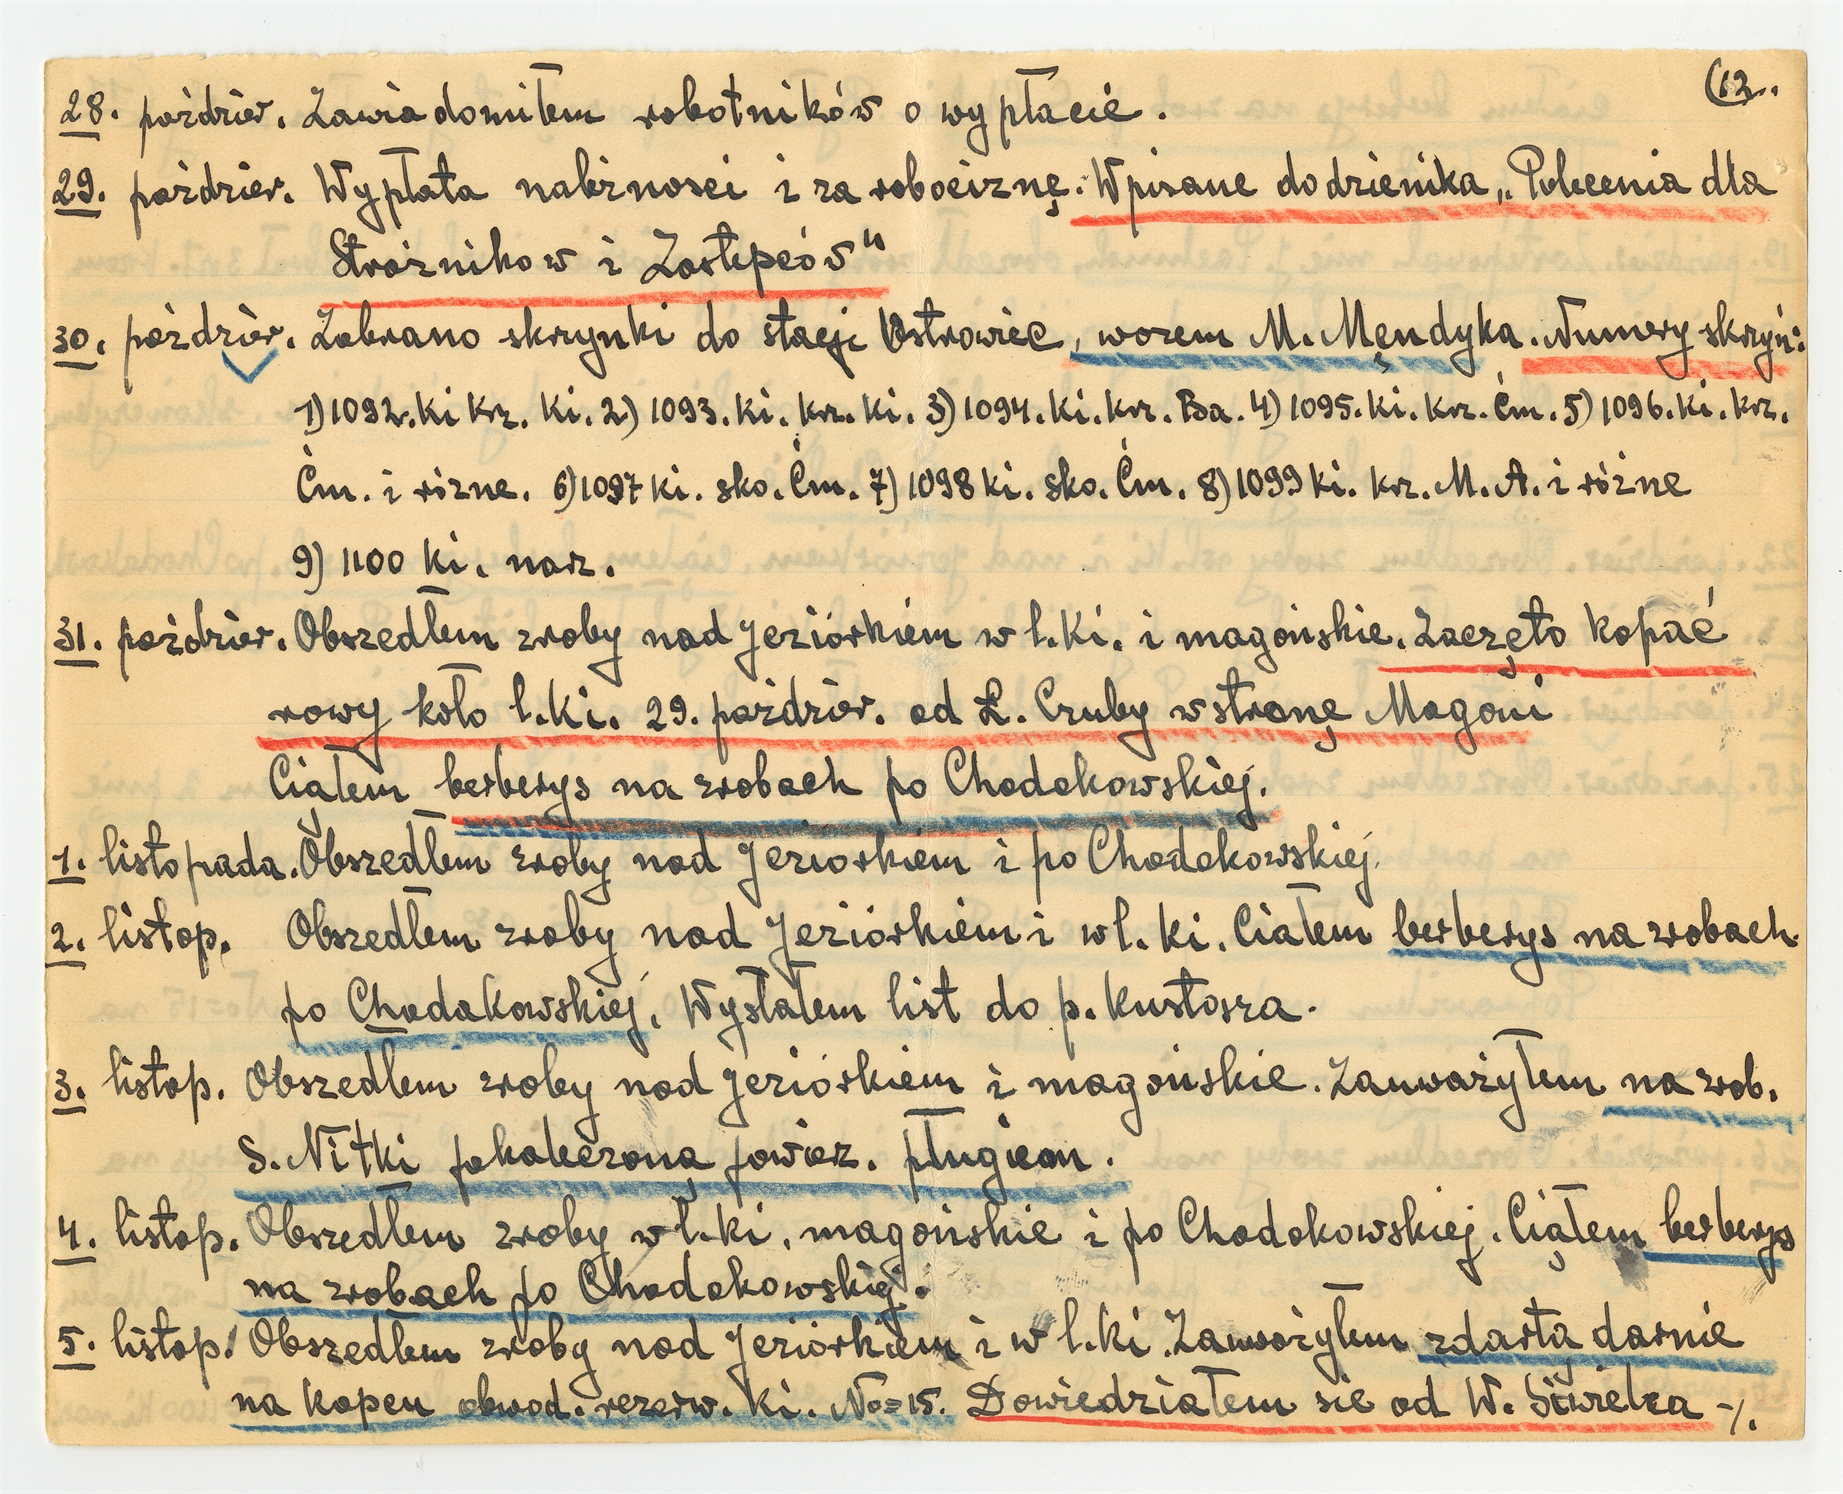 (12..
28. paździer. Zawiadomiłem robotników o wypłacie.
29. paździer. Wypłata należności i za robociznę. Wpisane do dzienika „Polecenia dla
Strażników i Zastępców"
30. paździer. Zabrano skrzynki do stacji Ostrowiec, wozem M. Mendyka. Numery skrzyń:
1) 1092. Ki krz. Ki. 2) 1093. Ki. krz. Ki. 3) 1094. Ki. krz. Ba. 4) 1095. Ki. krz. Ćm. 5) 1096. Ki. krz.
Ćm. i różne. 6) 1097 Ki. sko. Ćm. 7) 1098 Ki. sko. Ćm. 8) 1099 Ki. krz. M. A. i różne
9) 1100 Ki. narz.
31. paździer. Obszedłem zroby nad Jeziórkiem w l. Ki. i magońskie. Zaczęto kopać
rowy koło l. Ki. 29. paździer. od Ł. Czuby w stronę Magoni
Ciąłem berberys na zrobach po Chodakowskiej.
1. listopada. Obszedłem zroby nad Jeziorkiem i po Chodakowskiej.
2. listop. Obszedłem zroby nad Jeziórkiem i w l. Ki. Ciałem berberys na zrobach
po Chodakowskiej, Wysłałem list do p. Kustosza.
3. listop. Obszedłem zroby nad Jeziórkiem i magońskie. Zauważyłem na zrob.
S. Nitki pokaleczoną powierz. pługiem.
4. listop. Obszedłem zroby w l. Ki. magońskie i po Chodakowskiej. Ciąłem berberys
na zrobach po Chodakowskiej.
5. listop. Obszedłem zroby nad Jeziórkiem i w l. Ki. Zauważyłem zdartą darnie
na kopcu obwod. rezerw. Ki. No=15. Dowiedziałem sie od W. Siwielca -/.